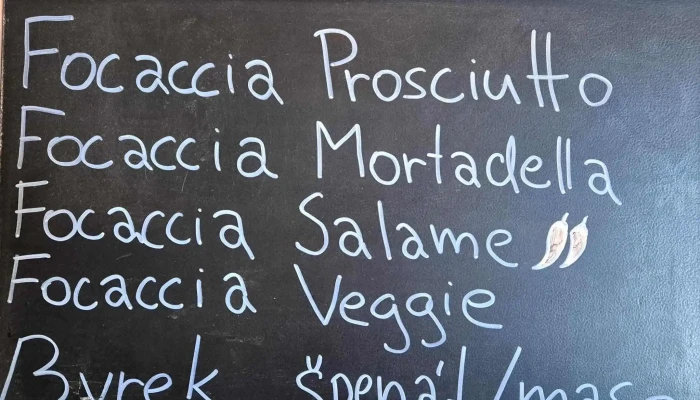 Focaccia Prosciutto
Focaccia Mortadella
Focaccia Salame
Focaccia Veggie
Byrek špenát/maso